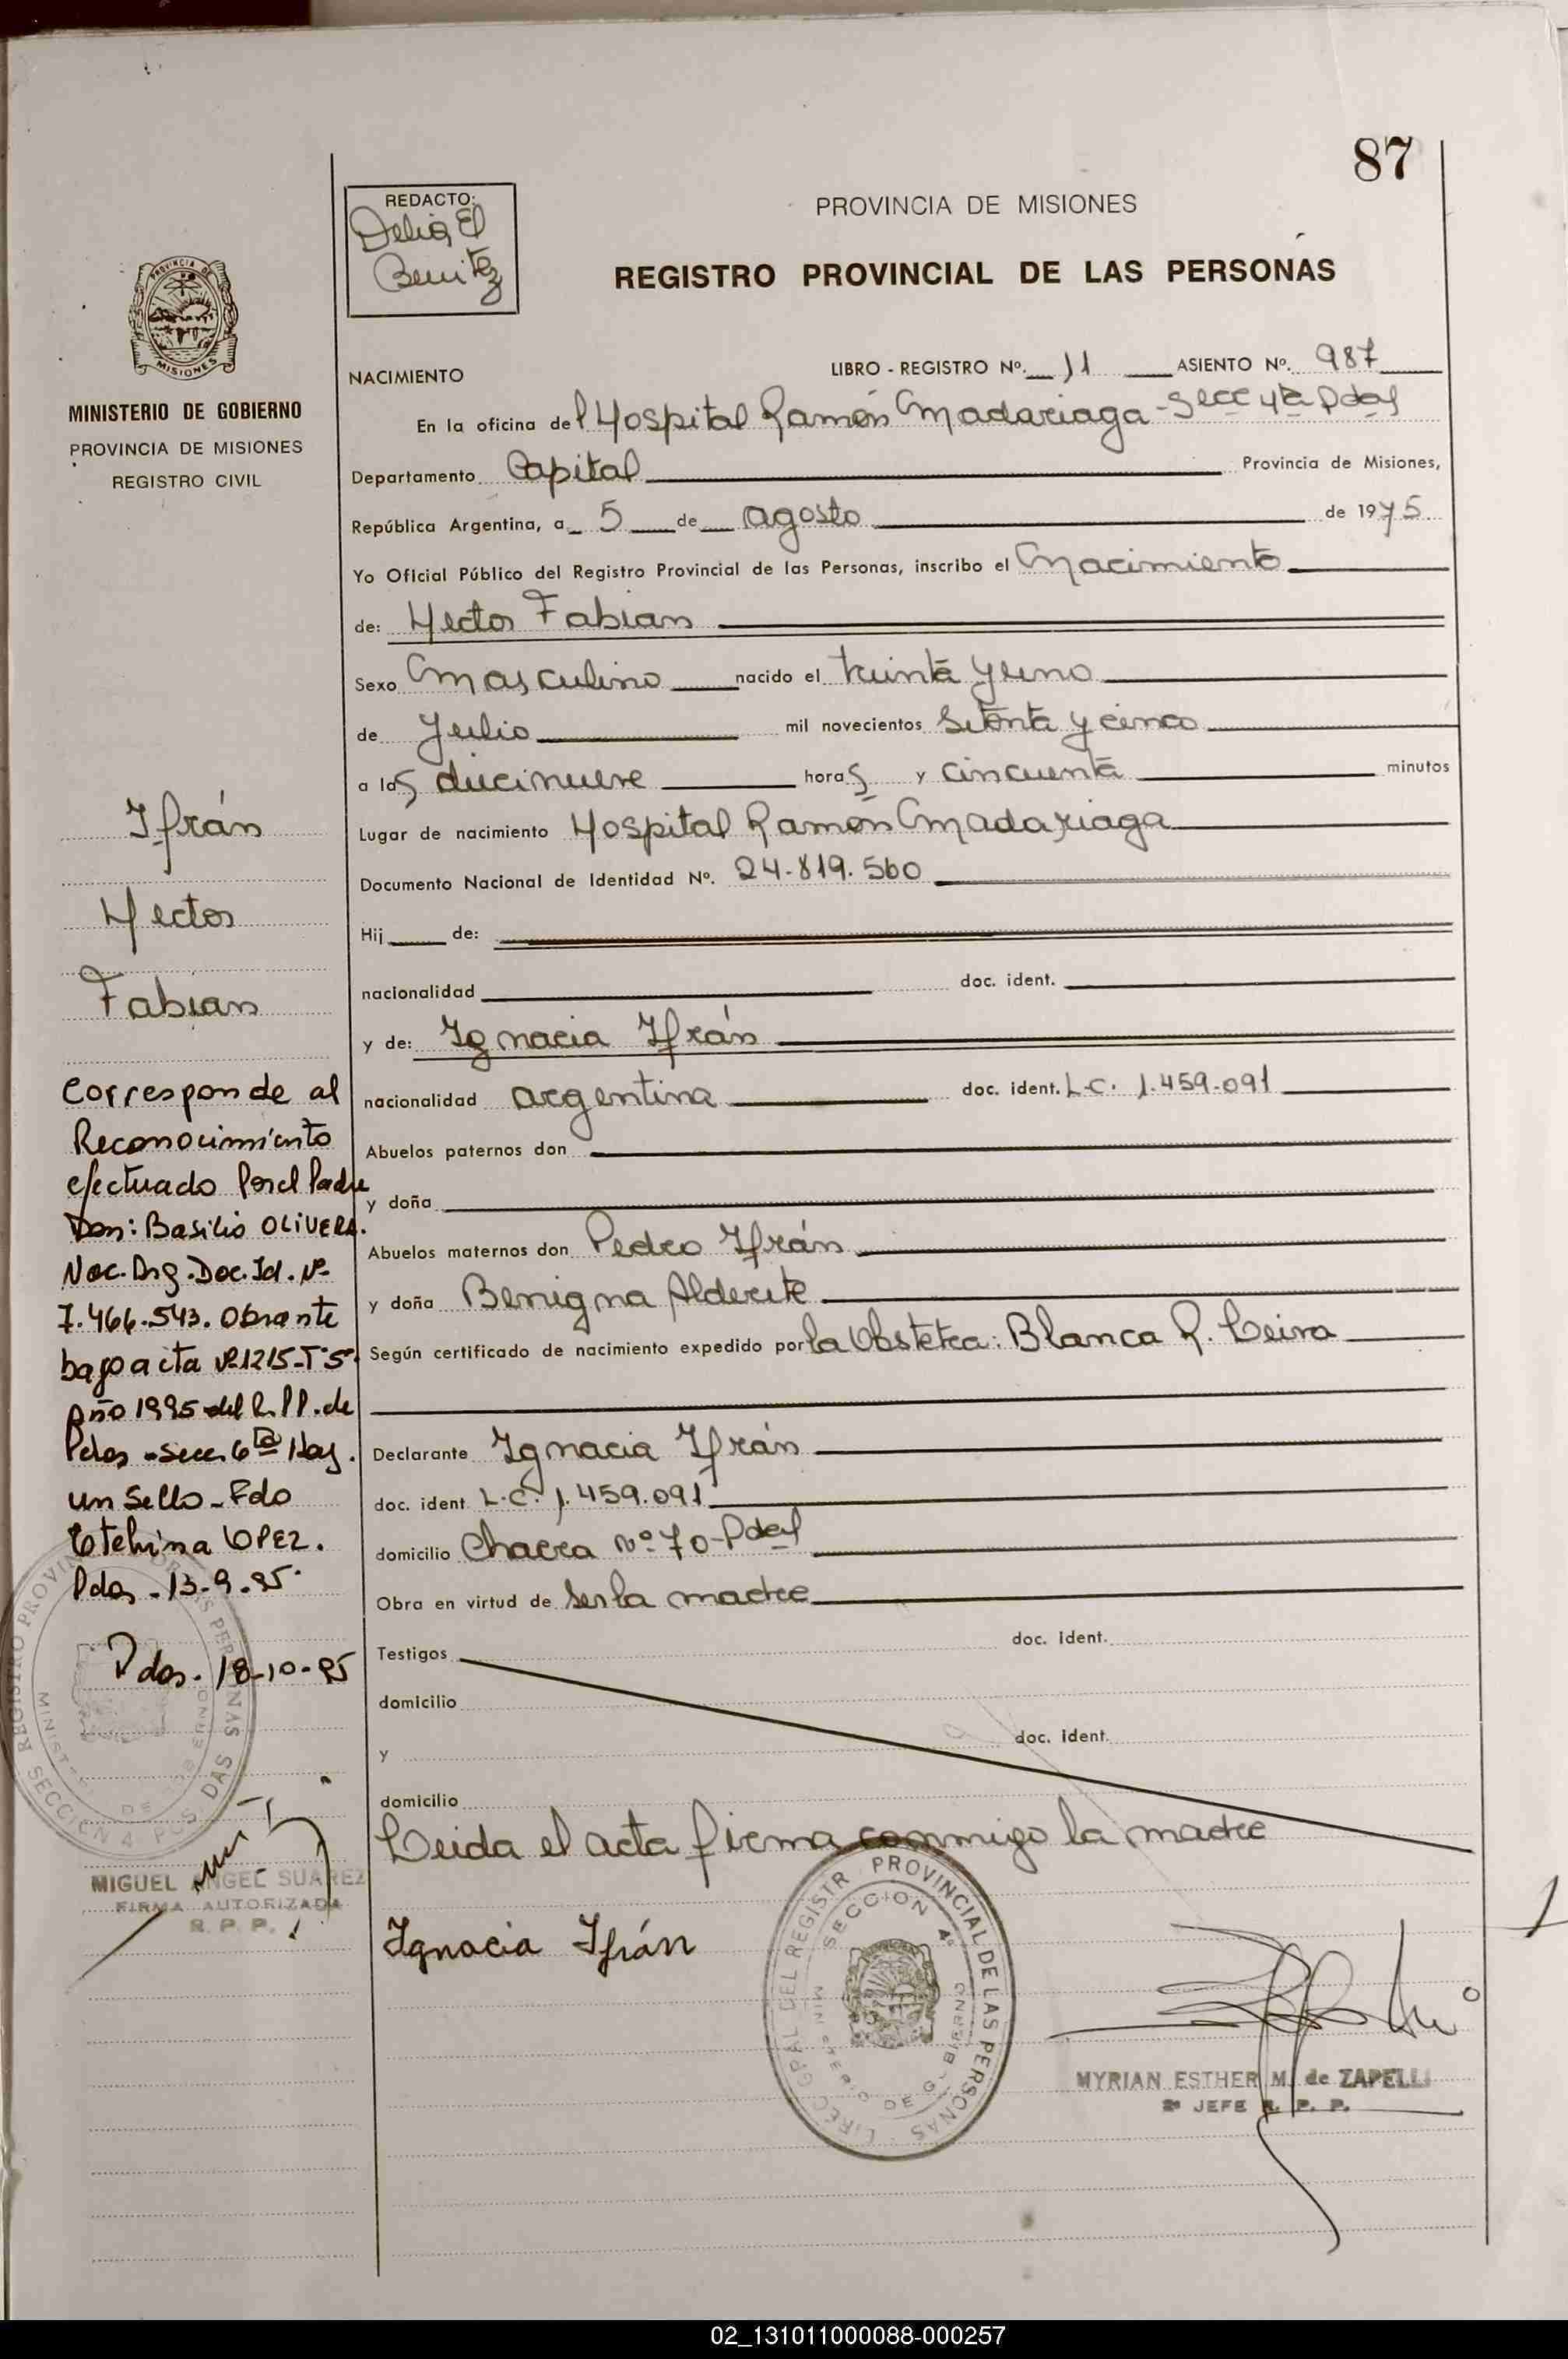 87
REDACTO:
Delia El
Benitez
PROVINCIA DE MISIONES
REGISTRO PROVINCIAL DE LAS PERSONAS
PROVINCIA DE
MISIONES
MINISTERIO DE GOBIERNO
PROVINCIA DE MISIONES
REGISTRO CIVIL
NACIMIENTO
LIBRO - REGISTRO Nº. 11 ASIENTO Nº. 987
En la oficina del Hospital Ramón Madariaga - Secc 4ta Pdas
Departamento Capital Provincia de Misiones,
República Argentina, a 5 de agosto de 1975
Yo Oficial Público del Registro Provincial de las Personas, inscribo el Nacimiento
de: Hector Fabian
Sexo Masculino nacido el treinta y uno
de Julio mil novecientos setenta y cinco
a las diecinueve horas y cincuenta minutos
Lugar de nacimiento Hospital Ramón Madariaga
Documento Nacional de Identidad Nº. 24.819.560
Hij de:
nacionalidad doc. ident.
y de: Ignacia Ifrán
nacionalidad argentina doc. ident. L.C. 1.459.091
Abuelos paternos don
y doña
Abuelos maternos don Pedro Ifrán
y doña Benigna Alderete
Según certificado de nacimiento expedido por la Obstetra: Blanca R. Leiva
Declarante Ignacia Ifrán
doc. ident L.C. 1.459.091
domicilio Chacra nº 70 - Pdas
Obra en virtud de ser la madre
Testigos doc. ident.
domicilio
y doc. ident.
domicilio
Leida el acta firma conmigo la madre
Ignacia Ifrán
DIREC GRAL DEL REGISTR PROVINCIAL DE LAS PERSONAS
SECCION 4º
MINISTERIO DE GOBIERNO
MYRIAN ESTHER M. de ZAPELLI
2º JEFE R. P. P.
Ifrán
Hector
Fabian
Corresponde al
Reconocimiento
efectuado Por el Padre
Don: Basilio OLIVERA.
Nac. Arg. Doc. Id. Nº
7.466.543. Obrante
bajo acta Nº 1215-Tº5º.
Año 1995 del R.P.P. de
Pdas - Secc 6ta Hay.
un Sello - Fdo
Etelvina LOPEZ.
Pdas - 13-9-95.
Pdas. 18-10-95
REGISTRO PROVINCIAL DE LAS PERSONAS
MINISTERIO DE GOBIERNO
SECCION 4 POSADAS
MIGUEL ANGEL SUAREZ
FIRMA AUTORIZADA
R. P. P.
02_131011000088-000257